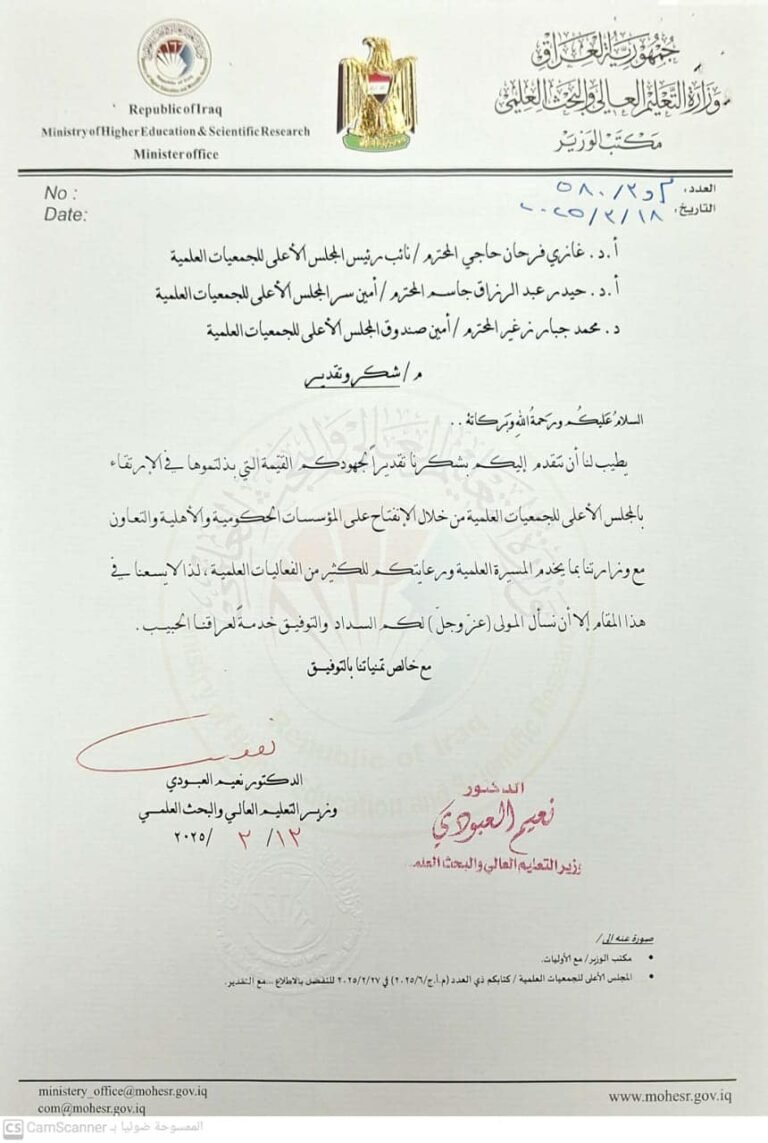 جمهورية العراق
وزارة التعليم العالي والبحث العلمي
مكتب الوزير
Republic of Iraq
Ministry of Higher Education & Scientific Research
Minister office
No :
Date:
العدد: م و٣/ ٥٨٠
التاريخ: ١٨ /٣/ ٢٠٢٥
أ.د. غازي فرحان حاجي المحترم / نائب رئيس المجلس الأعلى للجمعيات العلمية
أ.د. حيدر عبد الرزاق جاسم المحترم / أمين سر المجلس الأعلى للجمعيات العلمية
د. محمد جبار زغير المحترم / أمين صندوق المجلس الأعلى للجمعيات العلمية
م / شكر وتقدير
السلامُ عَليكُم ورَحمةُ اللهِ وبَركاتهُ ..
يطيب لنا أن نتقدم إليكم بشكرنا تقديراً لجهودكم القيّمة التي بذلتموها في الإرتقاء
بالمجلس الأعلى للجمعيات العلمية من خلال الإنفتاح على المؤسسات الحكومية والأهلية والتعاون
مع وزارتنا بما يخدم المسيرة العلمية ورعايتكم للكثير من الفعاليات العلمية ، لذا لا يسعنا في
هذا المقام إلا أن نسأل المولى (عزّ وجلّ) لكم السداد والتوفيق خدمةً لعراقنا الحبيب .
مع خالص تمنياتنا بالتوفيق
الدكتور نعيم العبودي
وزير التعليم العالي والبحث العلمي
١٢ / ٣ /٢٠٢٥
الدكتور
نعيم العبودي
وزير التعليم العالي والبحث العلم
صورة عنه الى /
• مكتب الوزير/ مع الأوليات.
• المجلس الأعلى للجمعيات العلمية / كتابكم ذي العدد (م.أ.ج/٢٠٢٥/٦) في ٢٠٢٥/٢/٢٧ للتفضل بالاطلاع ...مع التقدير.
ministery_office@mohesr.gov.iq
com@mohesr.gov.iq
www.mohesr.gov.iq
CS CamScanner الممسوحة ضوئيا بـ